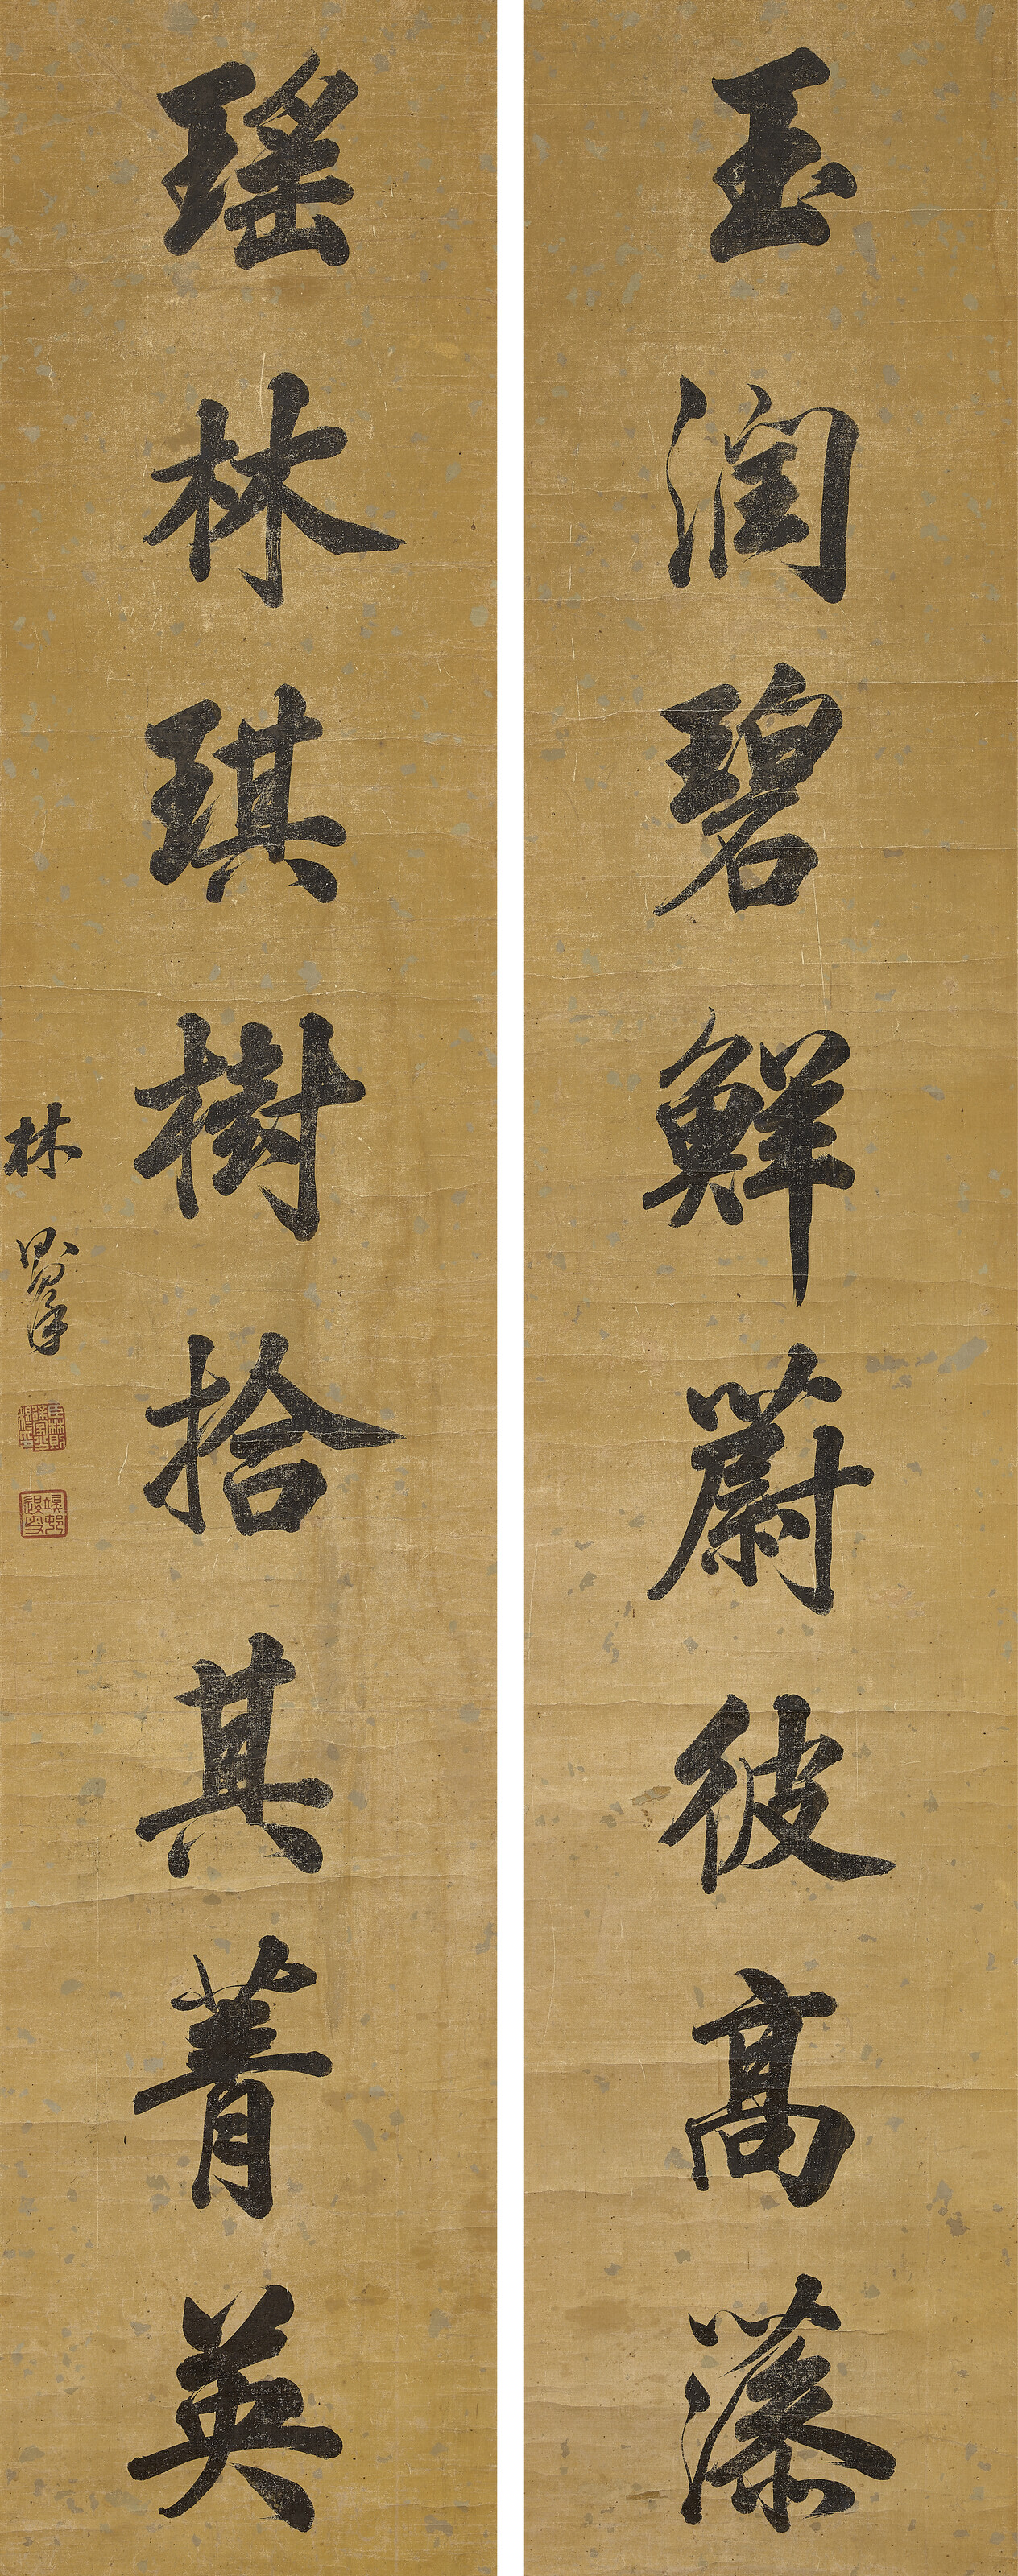 玉潤碧鮮蔚彼高藻
瑤林琪樹拾其菁英
林則徐
竢邨退叟